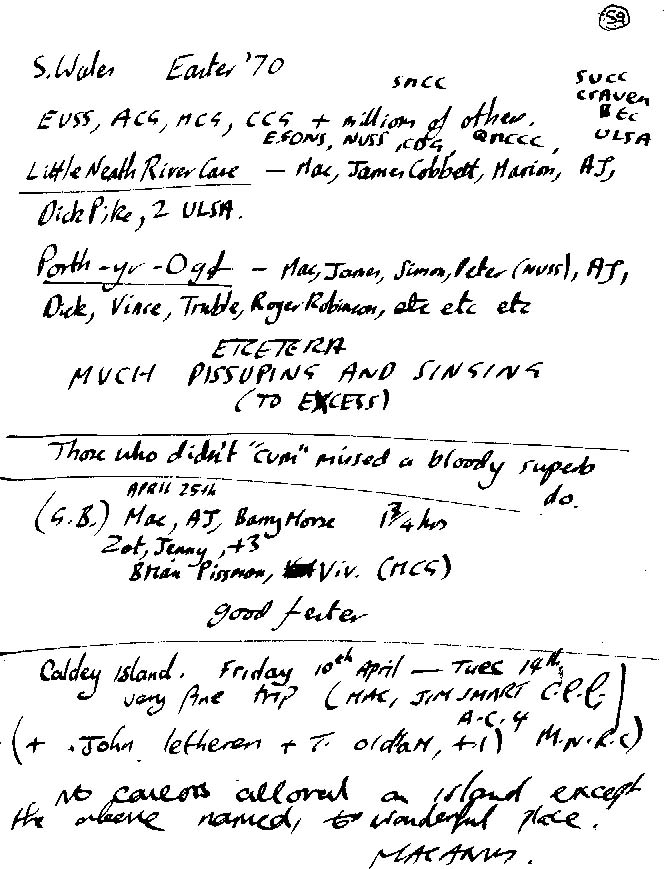 59
S. Wales Easter '70
SMCC SUCC
CRAVEN
BEC
EUSS, ACG, MCG, CCG + millions of others.
EFONS, NUSS, CDG, QMCCC, ULSA
Little Neath River Cave — Mac, James Cobbett, Marion, AJ,
Dick Pike, 2 ULSA.
Porth-yr-Ogf — Mac, James, Simon, Peter (NUSS), AJ,
Dick, Vince, Truble, Roger Robinson, etc etc etc
ETCETERA
MUCH PISSUPING AND SINGING
(TO EXCESS)
Those who didn't "CUM" missed a bloody superb
do.
APRIL 25th
(G.B.) Mac, AJ, Barry Morse 1 3/4 hrs
Zot, Jenny, +3
Brian Pissmon, Viv. (MCG)
good fester
Caldey Island. Friday 10th April — Tues 14th
very fine trip (MAC, JIM SMART
A.C.G
(+ John letheren + T. oldham, +1) M.N.R.C)
No cavers allowed on island except
the above named, wonderful place.
MACANUS.